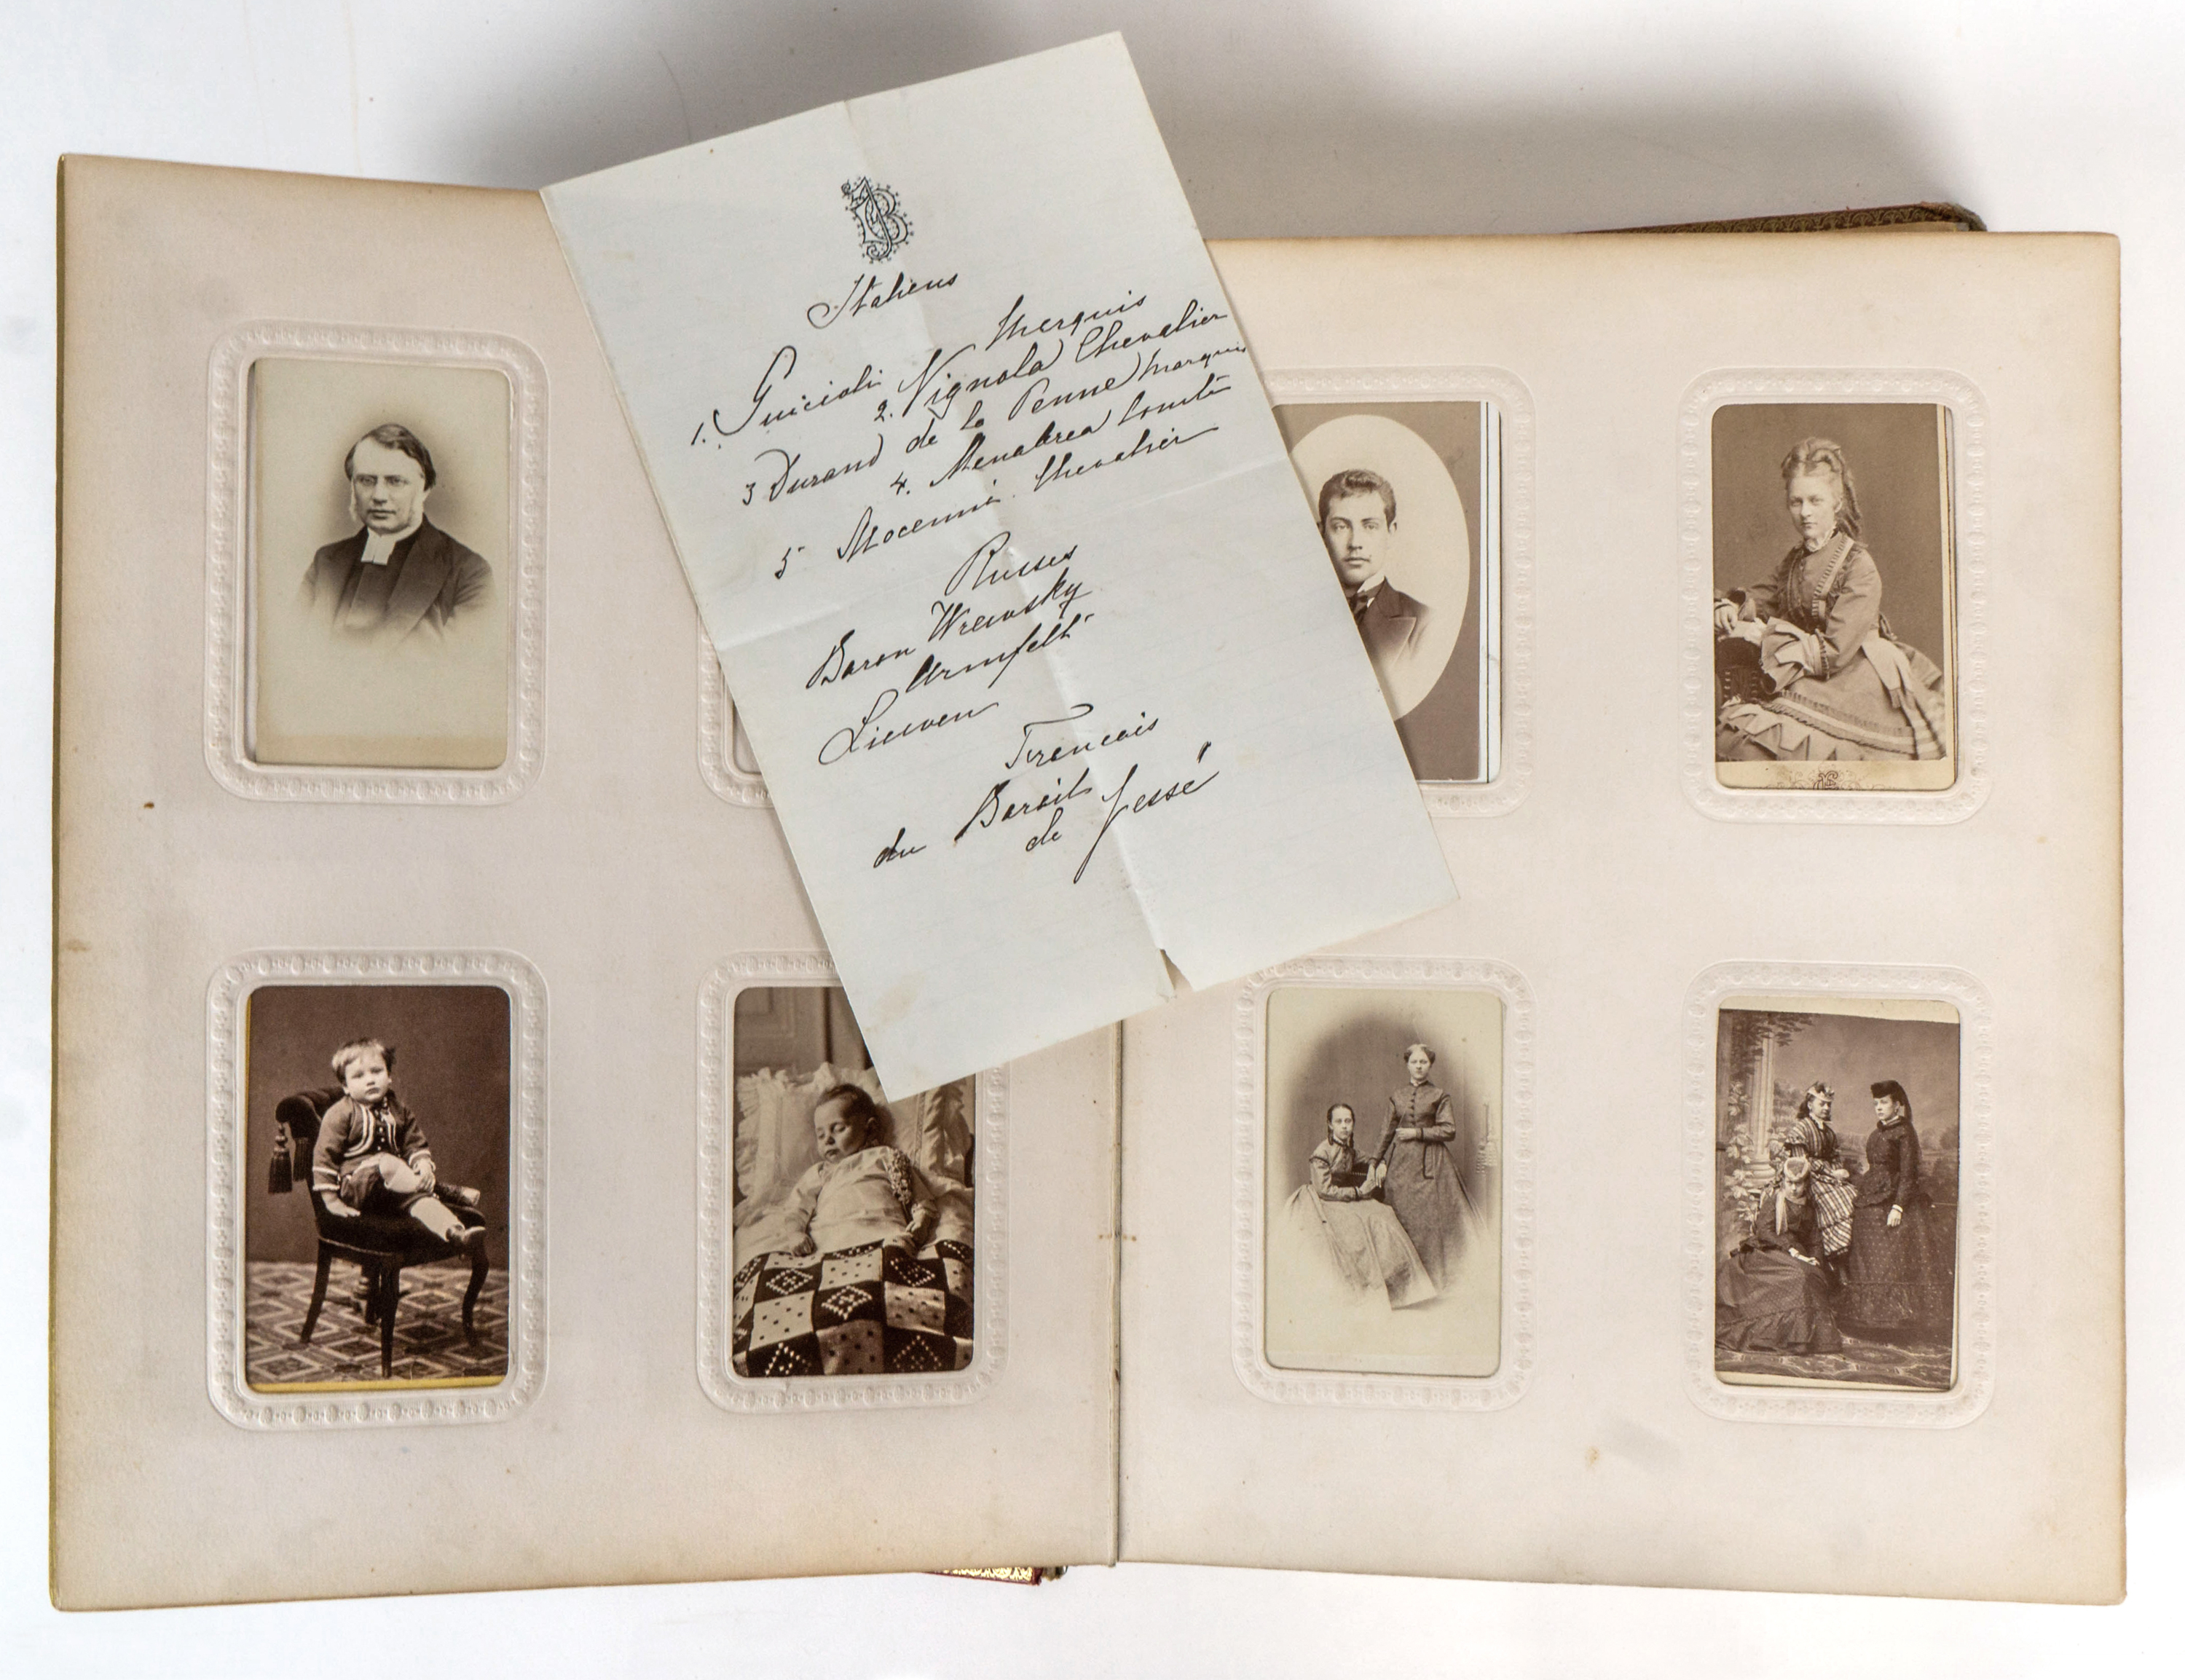 JB
Italiens
1. Guiccioli Marquis
2. Vignola Chevalier
3 Durand de la Penne Marquis
4. Menabrea Comte
5 Mocenni Chevalier
Russes
Baron Wrewsky
Armfelt
Lieven
Francais
du Boroit
de Jessé